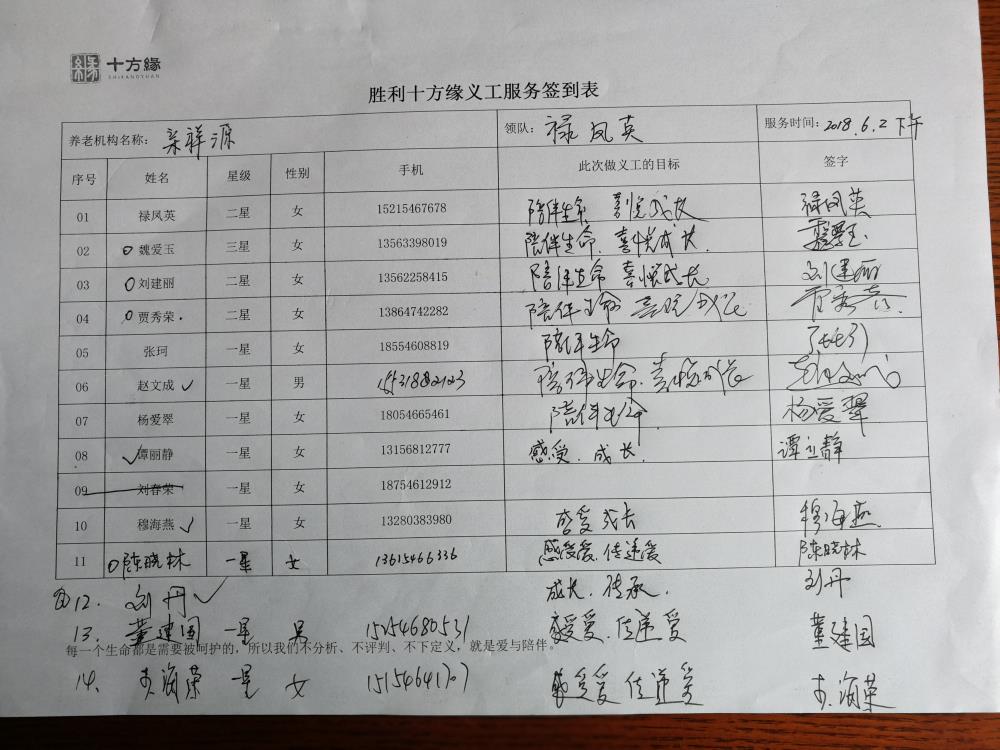 十方緣
SHIFANGYUAN
胜利十方缘义工服务签到表
养老机构名称：亲祥源 领队：禄凤英 服务时间：2018.6.2下午
序号 姓名 星级 性别 手机 此次做义工的目标 签字
01 禄凤英 二星 女 15215467678 陪伴生命 喜悦成长 禄凤英
02 魏爱玉 三星 女 13563398019 陪伴生命.喜悦成长.
03 刘建丽 二星 女 13562258415 陪伴生命 喜悦成长 刘建丽
04 贾秀荣. 二星 女 13864742282 陪伴生命 喜悦成长
05 张珂 一星 女 18554608819 陪伴生命
06 赵文成 一星 男 15318882123 陪伴生命.喜悦成长
07 杨爱翠 一星 女 18054665461 陪伴生命. 杨爱翠
08 谭丽静 一星 女 13156812777 感受.成长. 谭立静
09 刘春荣 一星 女 18754612912
10 穆海燕 一星 女 13280383980 感受成长 穆海燕
11 陈晓林 一星 女 13615466336 感受爱.传递爱 陈晓林
12. 刘丹 成长.传承. 刘丹
13. 董建国 一星 男 15154680531 感受爱.传递爱 董建国
每一个生命都是需要被呵护的，所以我们不分析、不评判、不下定义，就是爱与陪伴。
14. 海荣 一星 女 15154641707 感受爱 传递爱 海荣